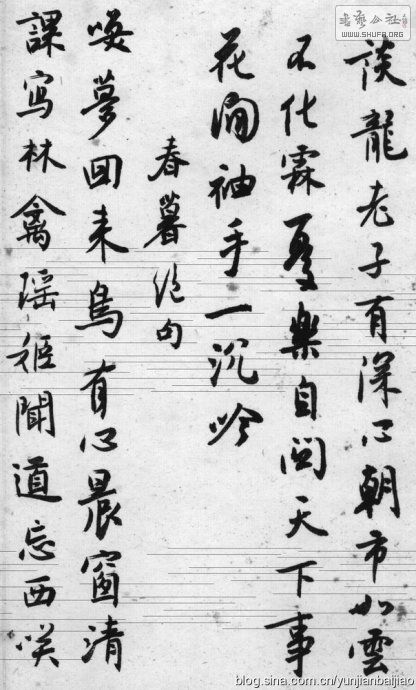 談龍老子有深心朝市如雲
不化霖憂樂自關天下事
花間袖手一沉吟
春暮絕句
喚夢回來鳥有心晨窗清
課寫林禽瑤姬聞道忘西咲
书艺公社
WWW.SHUFA.ORG
blog.sina.com.cn/yunjianbaijiao